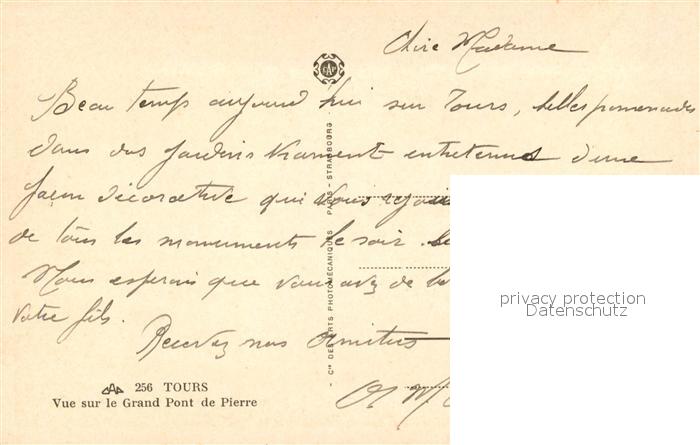 Chère Madame
Beau temps aujourd'hui sur Tours, belles promenades
dans des jardins vraiment entretenus d'une
façon décorative qui vous
de tous les monuments le soir.
Nous espérons que vous avez de
votre fils.
Recevez nos Amitiés
CAP
- Cie DES ARTS PHOTOMÉCANIQUES PARIS - STRASBOURG -
privacy protection
Datenschutz
CAP 256 TOURS
Vue sur le Grand Pont de Pierre